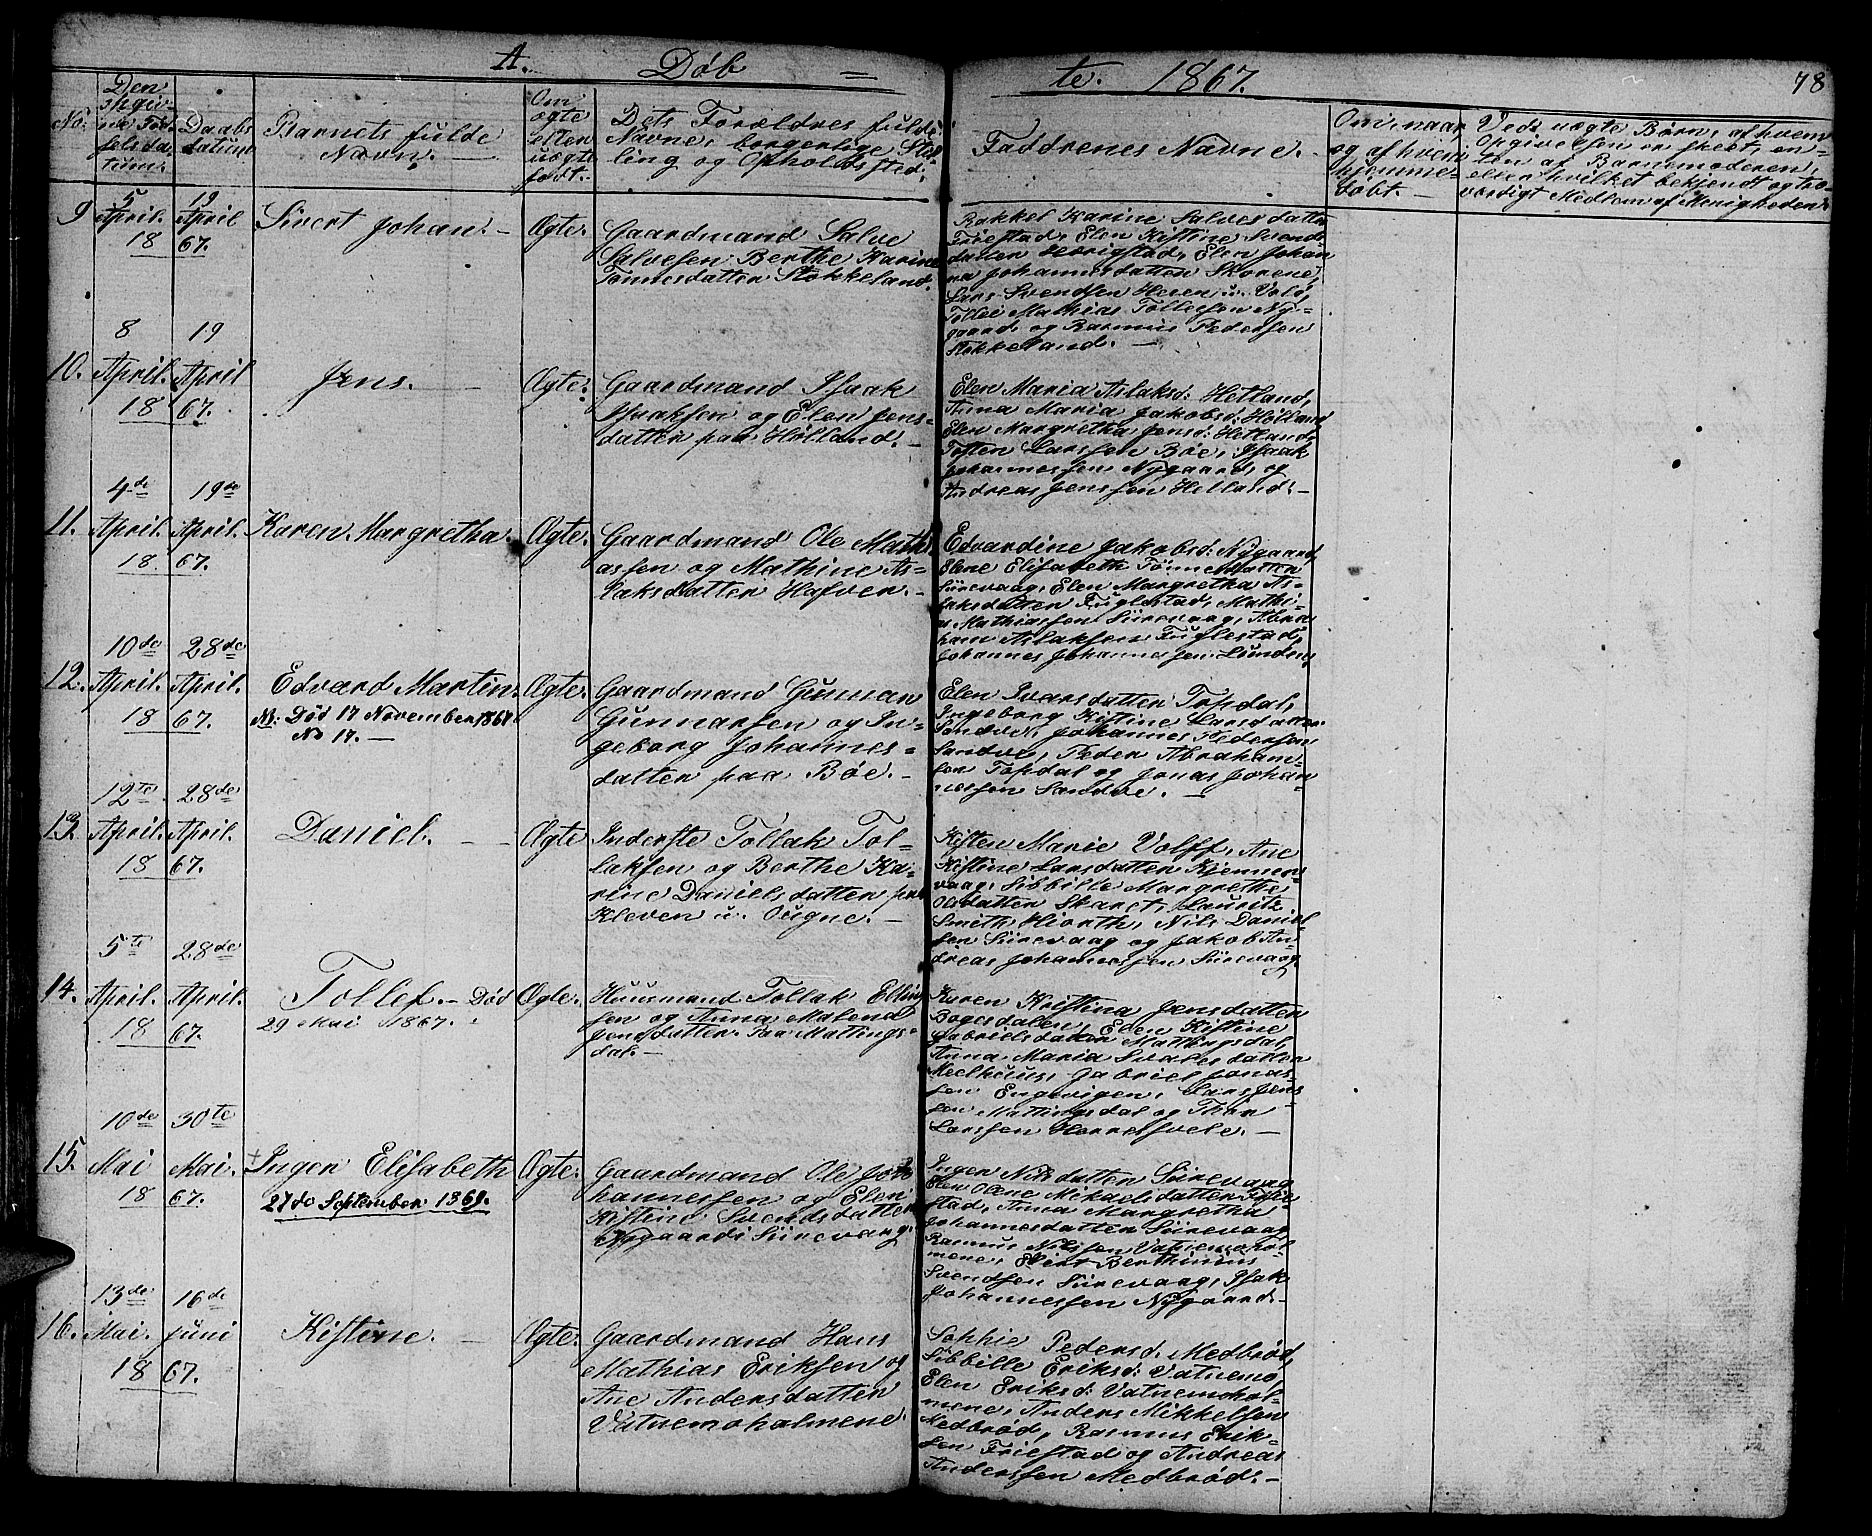 A. Døb = te. 1867. 78
No.
Den
opgiv-
ne Fød-
selsda-
tum.
Daabs
datum
Barnets fulde
Navn. —
Om
ægte
eller
uægte
født.
Dets Forældres fulde
Navne, borgerlige Stil-
ling og Opholdssted.
Faddrenes Navne. —
Om, naar
og af hvem
hjemme-
døbt. —
Ved uægte Børn, af hvem
Opgivelsen er skeet, en-
ten af Barnemoderen,
eller hvilket bekjendt og tro-
værdigt Medlem af Menigheden.
9. 5 April 18 19 April 67.
Sivert Johan. —
Ægte.
Gaardmand Salve
Salvesen Berthe Karine
Tønnesdatter Stokkeland.
Rakkel Karine Salvesdatter
Friestad, Elen Kistine Svends
datter Hærigstad, Elen Johan
na Johannesdatter Skorene,
Lars Svendsen Heren u. Vold,
Tollei Mathias Tollefsen Ny-
gaard og Rasmus Pedersen
Stokkeland. —
10. 8 April. 18 19 April 67.
Jens. —
Ægte.
Gaardmand Isaak
Isaaksen og Elen Jens-
datter paa Hølland. —
Elen Maria Aslaksd: Hetland,
Anna Maria Jakobsd: Hølland
Elen Margretha Jensd: Hetland,
Tosten Larssen Bøe, Isaak
Johannessen Nygaard, og
Andreas Jenssen Helland. —
11. 4de April. 18 19de April. 67.
Karen Margretha.
Ægte.
Gaardmand Ole Mathi
assen og Mathine As-
laksdatter Hafven. —
Edvardine Jakobsd: Nygaard,
Elene Elisabeth Tønnesdatter
Siirevaag, Elen Margretha As-
laksdatter Fuglestad, Mathi-
as Mathiassen Siirevaag, Abra
ham Aslaksen Fuglestad,
Johannes Johannessen Lunden,
12. 10de April. 18 28de April. 67.
Edvard Martin.
NB: Død 17 November 1867
No 17. —
Ægte.
Gaardmand Gunnar
Gunnarsen og In-
geborg Johannes-
datter paa Bøe. —
Elen Ivarsdatter Topdal,
Ingeborg Kistine Larsdatter
Sandve, Johannes Pedersen
Sandve, Peder Abraham-
sen Topdal og Jonas Johan-
nessen Sandve. —
13. 12te April. 18 28de April. 67.
Daniel. —
Ægte
Inderste Tollak Tol-
laksen og Berthe Ka-
rine Danielsdatter paa
Kleven u. Ougne. —
Kisten Marie Volff, Ane
Kistine Larsdatter Kjennen
vaag, Sibbille Margrethe
Olsdatter Skaret, Lauritz
Smith Hiorth, Nils Daniel
sen Siirevaag og Jakob An-
dreas Johannessen Siirevaag.
14. 5te April. 18 28de April. 67.
Tollef. — Død
29 Mai 1867.
Ægte.
Huusmand Tollak Elling
sen og Anna Malena
Jensdatter. Paa Mattings-
dal. —
Karen Kristina Jensdatter
Bogesdalen, Elen Kistine
Gabrielsdatter Mattingsdal,
Anna Maria Svalesdatter
Meelhuus, Gabriel Jonas-
sen Engevigen, Lars Jens
sen Mattingsdal og Thor
Larssen Horrelsvele. —
15. 10de Mai 18 30te Mai. 67.
† Inger Elisabeth
27de September 1869.
Ægte.
Gaardmand Ole Jo-
hannessen og Elen
Kistine Svendsdatter
Nygaard i Siirevaag.
Inger Nilsdatter Siirevaag
Elen Olene Mikaelsdatter Frie
stad, Anna Margretha
Johannesdatter Siirevaag
Rasmus Nilssen Vatnemohol
mene, Evert Berthinius
Svendsen Siirevaag, Isak
Johannessen Nygaard. —
16. 13de Mai. 18 16de Juni 67.
Kistine. —
Ægte.
Gaardmand Hans
Mathias Eriksen og
Ane Andersdatter
Vatnemoholmene.
Sophie Pedersd. Medbrød,
Sibbille Eriksd: Vatnemo,
Elen Eriksd: Vatnemohol
mene, Anders Mikkelsen
Medbrød, Rasmus Erik-
sen Friestad og Andreas
Anderssen Medbrød. —